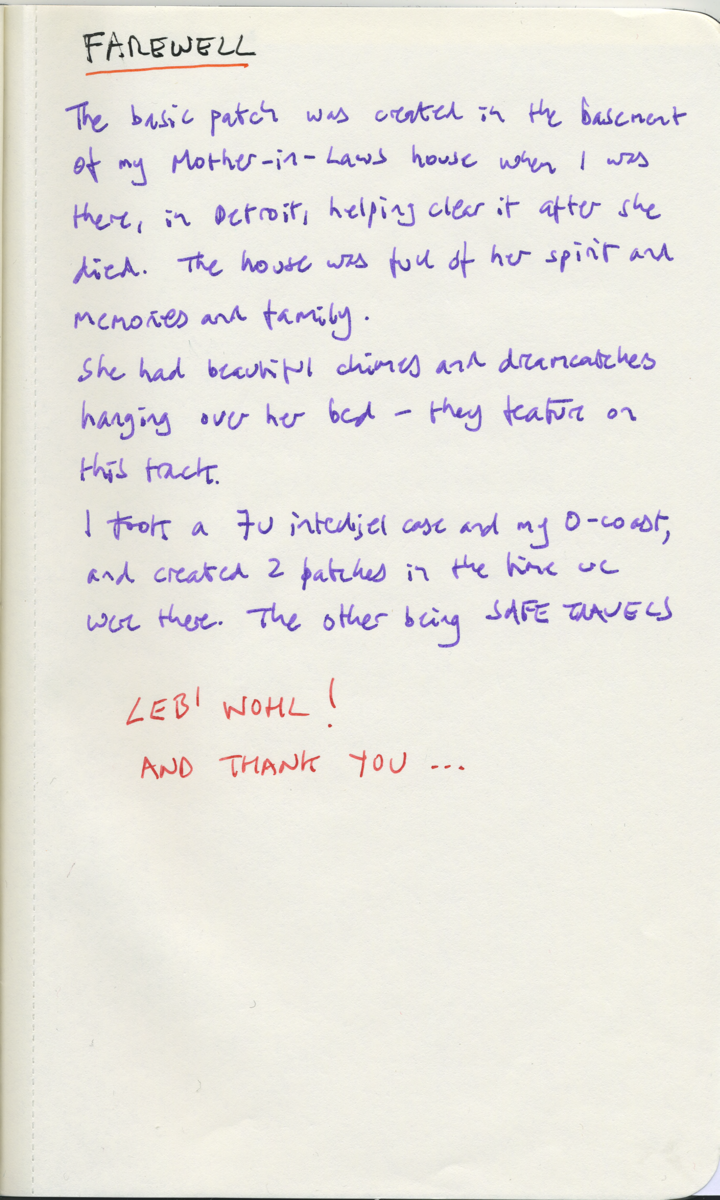 FAREWELL
The basic patch was created in the basement
of my Mother-in-Laws house when I was
there, in Detroit, helping clear it after she
died. The house was full of her spirit and
memories and family.
She had beautiful chimes and dreamcatches
hanging over her bed – they feature on
this track.
I took a 7U intellijel case and my O-coast,
and created 2 patches in the time we
were there. The other being SAFE TRAVELS
LEB' WOHL!
AND THANK YOU ...